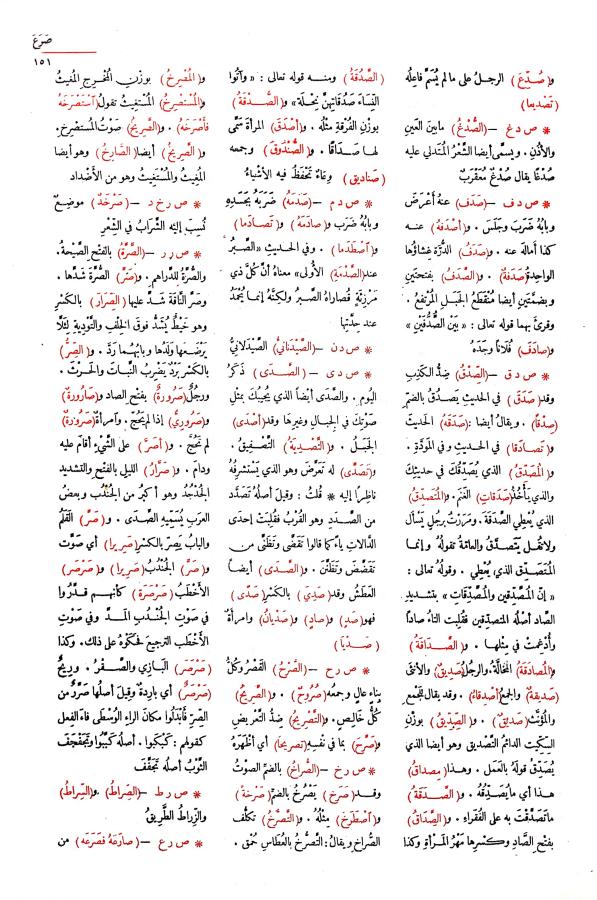 صَرَعَ
١٥١
و(صُدِّعَ) الرجلُ على ما لم يُسَمَّ فاعلُه
(تَصْديعا)
* ص د غ – (الصُّدْغُ) مابين العَينِ
والأُذُنِ. ويسمّى أيضا الشَّعْرُ المُتَدلى عليه
صُدْغًا يقال صُدْغٌ مُعَقْرَبٌ
* ص د ف – (صَدَف) عنه أَعْرَضَ
وبابُهُ ضَرَبَ وجَلَسَ. و(أصْدَفَهُ) عنه
كذا أمالَهُ عنه. و(صَدَفُ) الدُّرّةِ غِشاؤُها
الواحدةُ (صَدَفَةٌ). و(الصَّدَفُ) بفتحتين
وبضمتين أيضا مُنْقَطَعُ الجَبَلِ المُرْتَفِعُ.
وقرئ بهما قوله تعالى: «بَيْنَ الصُّدُفَيْنِ»
و(صادَفَ) فُلانًا وجَدَهُ
* ص د ق – (الصِّدْقُ) ضِدُّ الكَذِبِ
وقد (صَدَقَ) في الحديث يَصدُقُ بالضم
(صِدْقًا). ويقالُ أيضا: (صَدَقَهُ) الحديثَ
و(تَصادَقا) في الحديث وفي المَودَّةِ.
و(المُصَدِّقُ) الذي يُصَدِّقُك في حديثك
والذي يَأْخُذُ (صَدَقاتِ) الغَنَم. و(المُتَصَدِّقُ)
الذي يُعْطِي الصَّدَقَةَ. ومَرَرْتُ برجُلٍ يَسْأل
ولا تَقُل يَتَصدَّقُ والعامّة تقولُه وإنما
المُتَصَدِّق الذي يُعْطِي. وقولُه تعالى:
«إِنّ المُصَّدِّقِينَ والمُصَّدِّقاتِ» بتشديد
الصاد أصلُه المتصدِّقين فقُلبت التاءُ صادًا
وأُدغمتْ في مِثلها. و(الصَّداقَةُ)
و(المُصادَقَةُ) المُخالَّةُ، والرجُلُ (صَدِيقٌ) والأنثى
(صَدِيقَةٌ) والجمعُ (أصْدِقاءُ). وقد يقال للجَمْع
والمُؤَنَّثِ (صَديقٌ). و(الصِّدِّيقُ) بوزْن
السِّكِّيت الدائمُ التَّصْديق وهو أيضا الذي
يُصَدِّقُ قولَهُ بالعَمَل. وهذا (مِصداقُ)
هذا أي مايُصَدِّقُه. و(الصَّدَقَةُ)
ماتَصَدَّقْتَ به على الفُقَراءِ. و(الصَّداقُ)
بفتح الصَّادِ وكسْرِها مَهْرُ المَرْأةِ وكذا
(الصَّدُقَةُ) ومنه قوله تعالى: «وآتُوا
النِّساءَ صَدُقاتِهِنَّ نِحْلَةً» و(الصُّدْقَةُ)
بوزْنِ الفُرْقَةِ مثْلُهُ. و(أصْدَقَ) المرأة سمَّى
لها صَداقًا. و(الصُّنْدُوقُ) وجمعه
(صَنادِيقُ) وِعاءٌ تُحْفَظُ فيه الأشْياءُ
* ص د م – (صَدَمَهُ) ضَرَبَهُ بجَسَدِه
وبابُهُ ضَرَبَ و(صادَمَهُ) و(تَصادَما)
و(اصْطَدَما). وفي الحديث «الصَّبْرُ
عند (الصَّدْمَةِ) الأُولَى» معناهُ أنّ كلّ ذي
مَرْزِئَةٍ قُصاراهُ الصبرُ ولكنّه إنما يُحْمَدُ
عند حِدَّتِها
* ص د ن – (الصَّيْدَنانيُّ) الصَّيْدَلانيُّ
* ص د ى – (الصَّدَى) ذَكَرُ
البُومِ. والصَّدَى أيضاً الذي يُجيبُكَ بمثلِ
صَوْتِكَ في الجِبالِ وغيرها وقد (أصْدَى)
الجَبلُ. و(التَّصْدِيَةُ) التَّصْفيقُ.
و(تَصَدَّى) له تَعَرَّضَ وهو الذي يَستَشْرِفُه
ناظرًا إليه * قُلْتُ: وقيلَ أصلُه تَصَدَّدَ
من الصَّدَد وهو القُرْبُ فقُلِبَت إحدى
الدّالات ياء كما قالوا تَقَضَّى وتَظَنَّى من
تَقَضَّضَ وتَظَنَّنَ. و(الصَّدَى) أيضاً
العَطَش وقد (صَدِيَ) بالكسر (صَدًى)
فهو (صَدٍ) و(صادٍ) و(صَدْيانُ) وامرأةٌ
(صَدْيَا)
* ص ر ح – (الصَّرْحُ) القَصْرُ وكلُّ
بناء عالٍ وجمعُه (صُرُوحٌ). و(الصَّرِيحُ)
كُلُّ خالِصٍ. و(التَّصْرِيحُ) ضِدُّ التَّعْرِيض
و(صَرَّحَ) بما في نفْسِه (تصريحا) أي أظْهَرَهُ
* ص ر خ – (الصُّراخُ) بالضم الصَّوتُ
وقد (صَرَخَ) يَصْرُخُ بالضم (صَرْخةً)
و(اصْطَرَخَ) مِثْلُهُ. و(التَّصَرُّخُ) تَكَلُّف
الصُّراخِ ويقالُ: التَّصَرُّخُ بالعُطاسِ حُمْق.
و(المُصْرِخُ) بوزْن المُخْرِج المُغِيثُ
و(المُسْتَصْرِخُ) المُسْتَغِيثُ تقولُ (استَصْرَخَهُ
فأَصْرَخَهُ). و(الصَّرِيخُ) صَوْتُ المُستصرِخ.
و(الصَّرِيخُ) أيضا (الصَّارِخُ) وهو أيضا
المُغِيثُ والمُسْتَغيثُ وهو من الأضْداد
* ص ر خ د – (صَرْخَدُ) موضعٌ
نُسِبَ إليْهِ الشَّرابُ في الشِّعْر
* ص ر ر – (الصَّرَّةُ) بالفتح الصَّيْحةُ.
والصُّرّةُ للدَّراهم. و(صَرَّ) الصُّرَّةَ شَدَّها.
وصَرَّ النَّاقَةَ شَدَّ عليها (الصِّرارَ) بالكَسْرِ
وهو خَيْطٌ يُشَدُّ فوقَ الخِلْفِ والتَّوْدِيةِ لئلَّا
يَرْضَعها ولَدُها وبابُهما رَدّ. و(الصِّرُّ)
بالكسر بَرْدٌ يَضْرِبُ النَّباتَ والحَرْثَ.
ورجُلٌ (صَرُورةٌ) بفتح الصاد و(صَارُورةٌ)
و(صَرُورِيٌّ) إذا لم يَحُجَّ. وامرأةٌ (صَرُورَةٌ)
لم تَحُجَّ. و(أصَرَّ) على الشَّيْءِ أقامَ عليه
ودامَ. و(صَرَّارُ) الليل بالفتح والتشديد
الجُدْجُدُ وهو أكبرُ من الجُنْدُب وبعضُ
العَرَبِ يُسَمِّيهِ الصَّدَى. و(صَرَّ) القَلَمُ
والبابُ يَصِرّ بالكَسْرِ (صَرِيرا) أي صَوَّتَ
و(صَرَّ) الجُنْدُبُ (صَرِيرا) و(صَرْصَرَ)
الأخْطَبُ (صَرْصَرَةً) كأنَّهم قَدَّرُوا
في صَوتِ الجُنْدُبِ المَدَّ وفي صَوتِ
الأخْطَب الترجيعَ فحَكَوْهُ على ذلك. وكذا
(صَرْصَرَ) البازي والصَّقْرُ. ورِيحٌ
(صَرْصَرٌ) أي بارِدَةٌ وقيل أصلُها صَرَّرٌ من
الصِّرّ فأبْدَلُوا مكانَ الراء الوُسْطَى فاءَ الفِعلِ
كقولهم: كَبْكَبوا. أصلُه كَبَّبُوا وتَجَفْجَفَ
الثَّوبُ أصلُه تَجَفَّفَ
* ص ر ط – (الصِّراطُ) و(السِّراطُ)
والزِّراطُ الطَّرِيقُ
* ص ر ع – (صَارَعَهُ فصَرَعَه) من